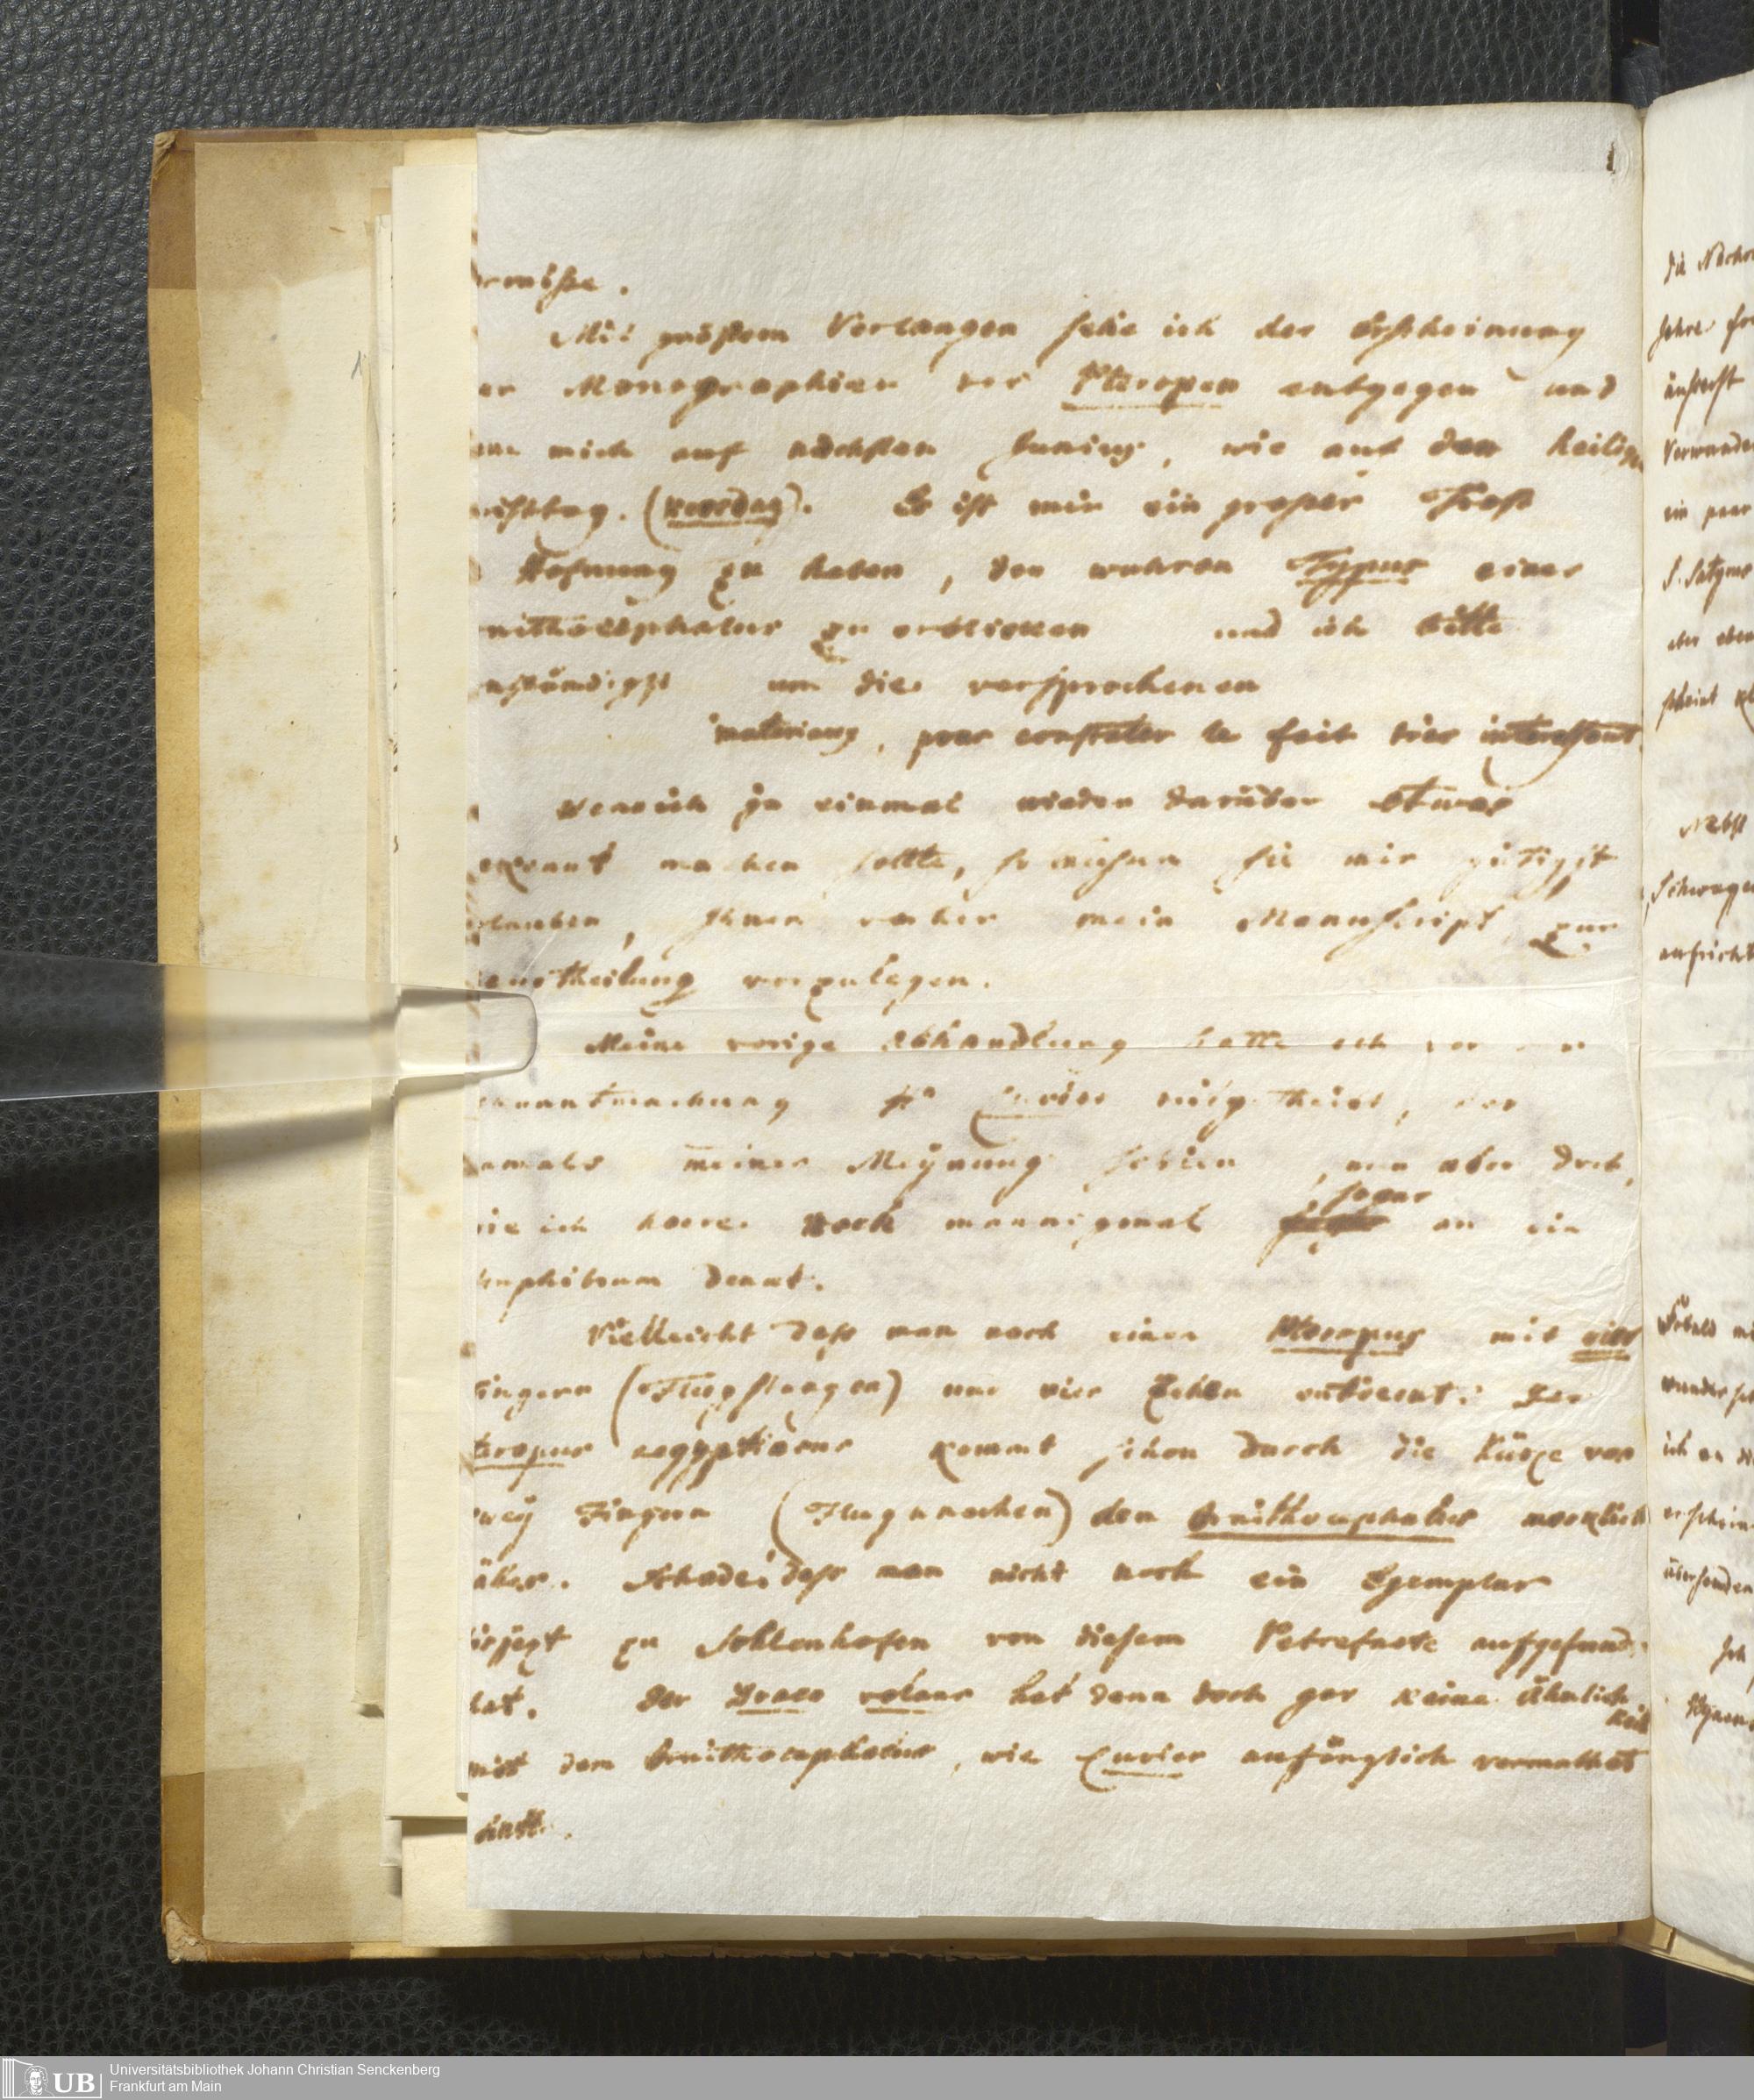 Mit größtem Verlangen sehe ich der Erscheinung
er Monographien der Pteropen entgegen und
mich auf nächsten Junius, wie auf den heilig
isttag. Es ist mir ein großer Trost
Hofnung zu haben, den wahren Typus eines
nithocephalus zu erblicken und ich bitte
nständigst um die versprochenen
materiaux, pour constater le fait tres interessant.
Wenn ich ja einmal wieder darüber etwas
ekannt machen sollte, so müssen Sie mir gütigst
rlauben, Ihnen vorher mein Manuscript zur
eurtheilung vorzulegen.
Meine vorige Abhandlung hatte ich vor
kanntmachung Cuvier mitgetheilt, der
amals meiner Meynung schien, nun aber doch,
ie ich hoere noch mannigmal sogar an ein
mphibium denkt.
Vielleicht dass man noch einen Pteropus mit vier
Fingern (Flugstangen) und vier Zehen entdeckt. Der
teropus aegyptiacus kommt schon durch die Kürze von
wey Fingern (Flugknochen) dem Ornithocephalus merklich
äher. Schade! dass man nicht noch ein Exemplar
bisjezt zu Sohlenhofen von diesem Petrefacte aufgefund.
hat. Der Draco volans hat denn doch gar keine Ähnlich
keit
mit dem Ornithocephalus, wie Cuvier anfänglich vermuthet
die Nachr
Jahre
äusserst
Verwand
ein paar
aber eben
scheint
Nebst
Schwager
aufricht
Sobald mi
wunders
ich an di
erschein
übersenden
Ich
Universitätsbibliothek Johann Christian Senckenberg
Frankfurt am Main
UB